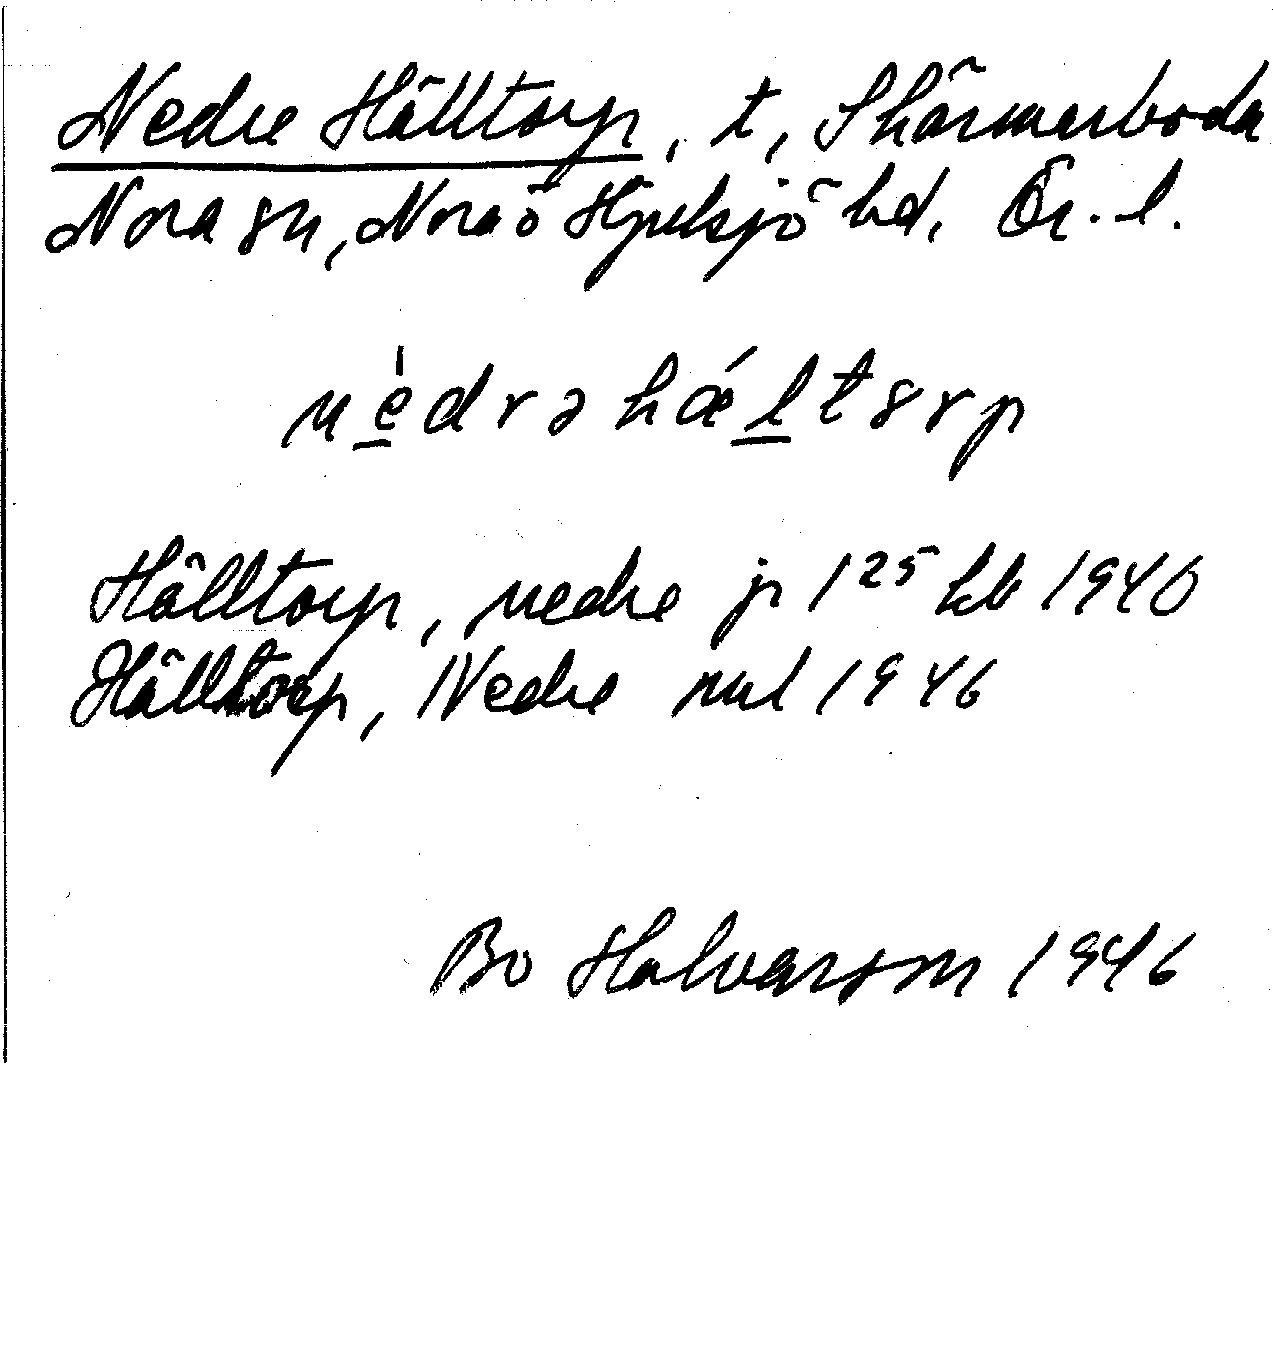 Nedre Hälltorp, t, Skärmarboda
Nora sn, Nora o Hjulsjö hd, Ör. l.
nèdrəhǽltɤrp
Hälltorp, nedre jr 1²⁵ lb 1940
Hälltorp, Nedre mtl 1946
Bo Halvarson 1946